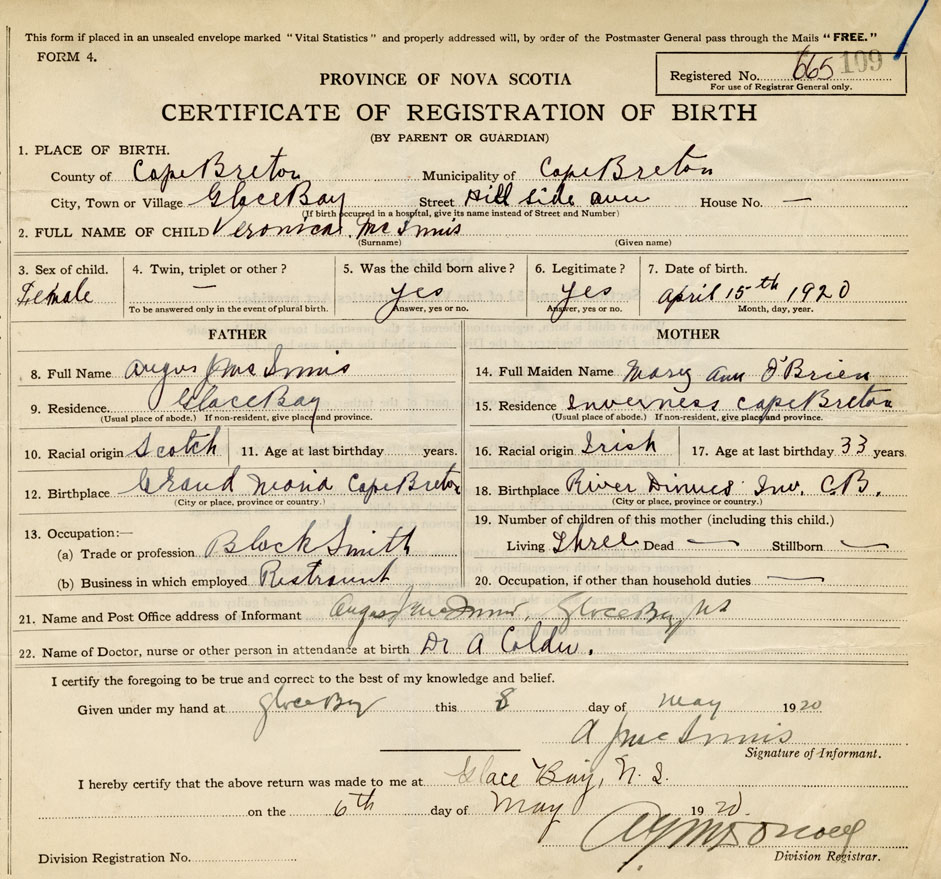 This form if placed in an unsealed envelope marked "Vital Statistics" and properly addressed will, by order of the Postmaster General pass through the Mails "FREE."
FORM 4.
Registered No. 665 109
For use of Registrar General only.
PROVINCE OF NOVA SCOTIA
CERTIFICATE OF REGISTRATION OF BIRTH
(BY PARENT OR GUARDIAN)
1. PLACE OF BIRTH.
County of Cape Breton Municipality of Cape Breton
City, Town or Village Glace Bay Street Hill side ave House No. —
(If birth occurred in a hospital, give its name instead of Street and Number)
2. FULL NAME OF CHILD Veronica Mc Innis
(Surname) (Given name)
3. Sex of child. 4. Twin, triplet or other? 5. Was the child born alive? 6. Legitimate? 7. Date of birth.
Female — yes yes April 15th 1920
To be answered only in the event of plural birth. Answer, yes or no. Answer, yes or no. Month, day, year.
FATHER
8. Full Name Angus J Mc Innis
9. Residence. Glace Bay
(Usual place of abode.) If non-resident, give place and province.
10. Racial origin Scotch 11. Age at last birthday years.
12. Birthplace Grand Cape Breton
(City or place, province or country.)
13. Occupation:—
(a) Trade or profession Black Smith
(b) Business in which employed Restraunt
MOTHER
14. Full Maiden Name Mary Ann O'Brien
15. Residence Inverness Cape Breton
(Usual place of abode.) If non-resident, give place and province.
16. Racial origin Irish 17. Age at last birthday 33 years.
18. Birthplace River Inv. C.B.
(City or place, province or country.)
19. Number of children of this mother (including this child.)
Living Three Dead — Stillborn —
20. Occupation, if other than household duties —
21. Name and Post Office address of Informant Angus J McInnis, Glace Bay NS
22. Name of Doctor, nurse or other person in attendance at birth Dr A Calder.
I certify the foregoing to be true and correct to the best of my knowledge and belief.
Given under my hand at Glace Bay this 8 day of May 1920
A J Mc Innis
Signature of Informant.
I hereby certify that the above return was made to me at Glace Bay, N. S.
on the 6th day of May 1920.
Division Registration No. Division Registrar.